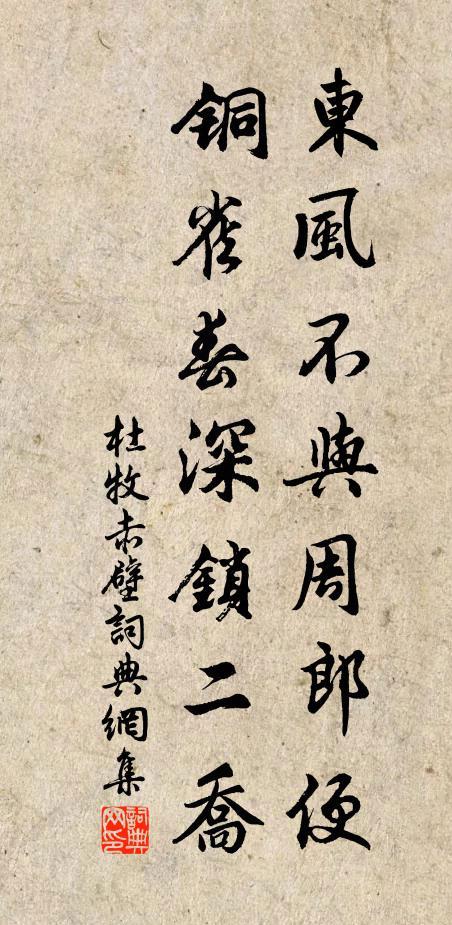 東風不與周郎便
銅雀春深鎖二喬
杜牧赤壁詞典網集
詞典网印